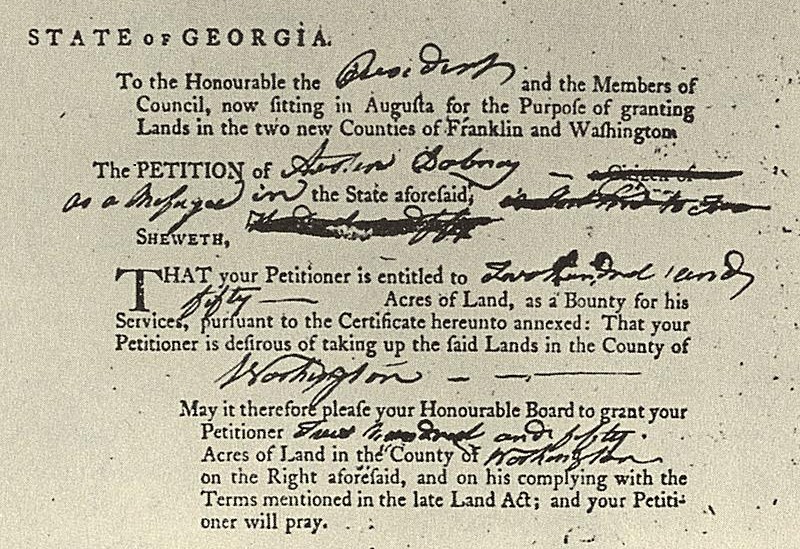 STATE OF GEORGIA.
To the Honourable the President and the Members of
Council, now ſitting in Auguſta for the Purpoſe of granting
Lands in the two new Counties of Franklin and Waſhington
The PETITION of Austin Dabney — Citizen of
as a Refugee in the State aforeſaid,
SHEWETH,
THAT your Petitioner is entitled to Two Hundred and
fifty — Acres of Land, as a Bounty for his
Services, purſuant to the Certificate hereunto annexed: That your
Petitioner is deſirous of taking up the ſaid Lands in the County of
Washington — — —
May it therefore pleaſe your Honourable Board to grant your
Petitioner Two hundred and fifty
Acres of Land in the County of Washington
on the Right aforeſaid, and on his complying with the
Terms mentioned in the late Land Act; and your Petiti-
oner will pray.